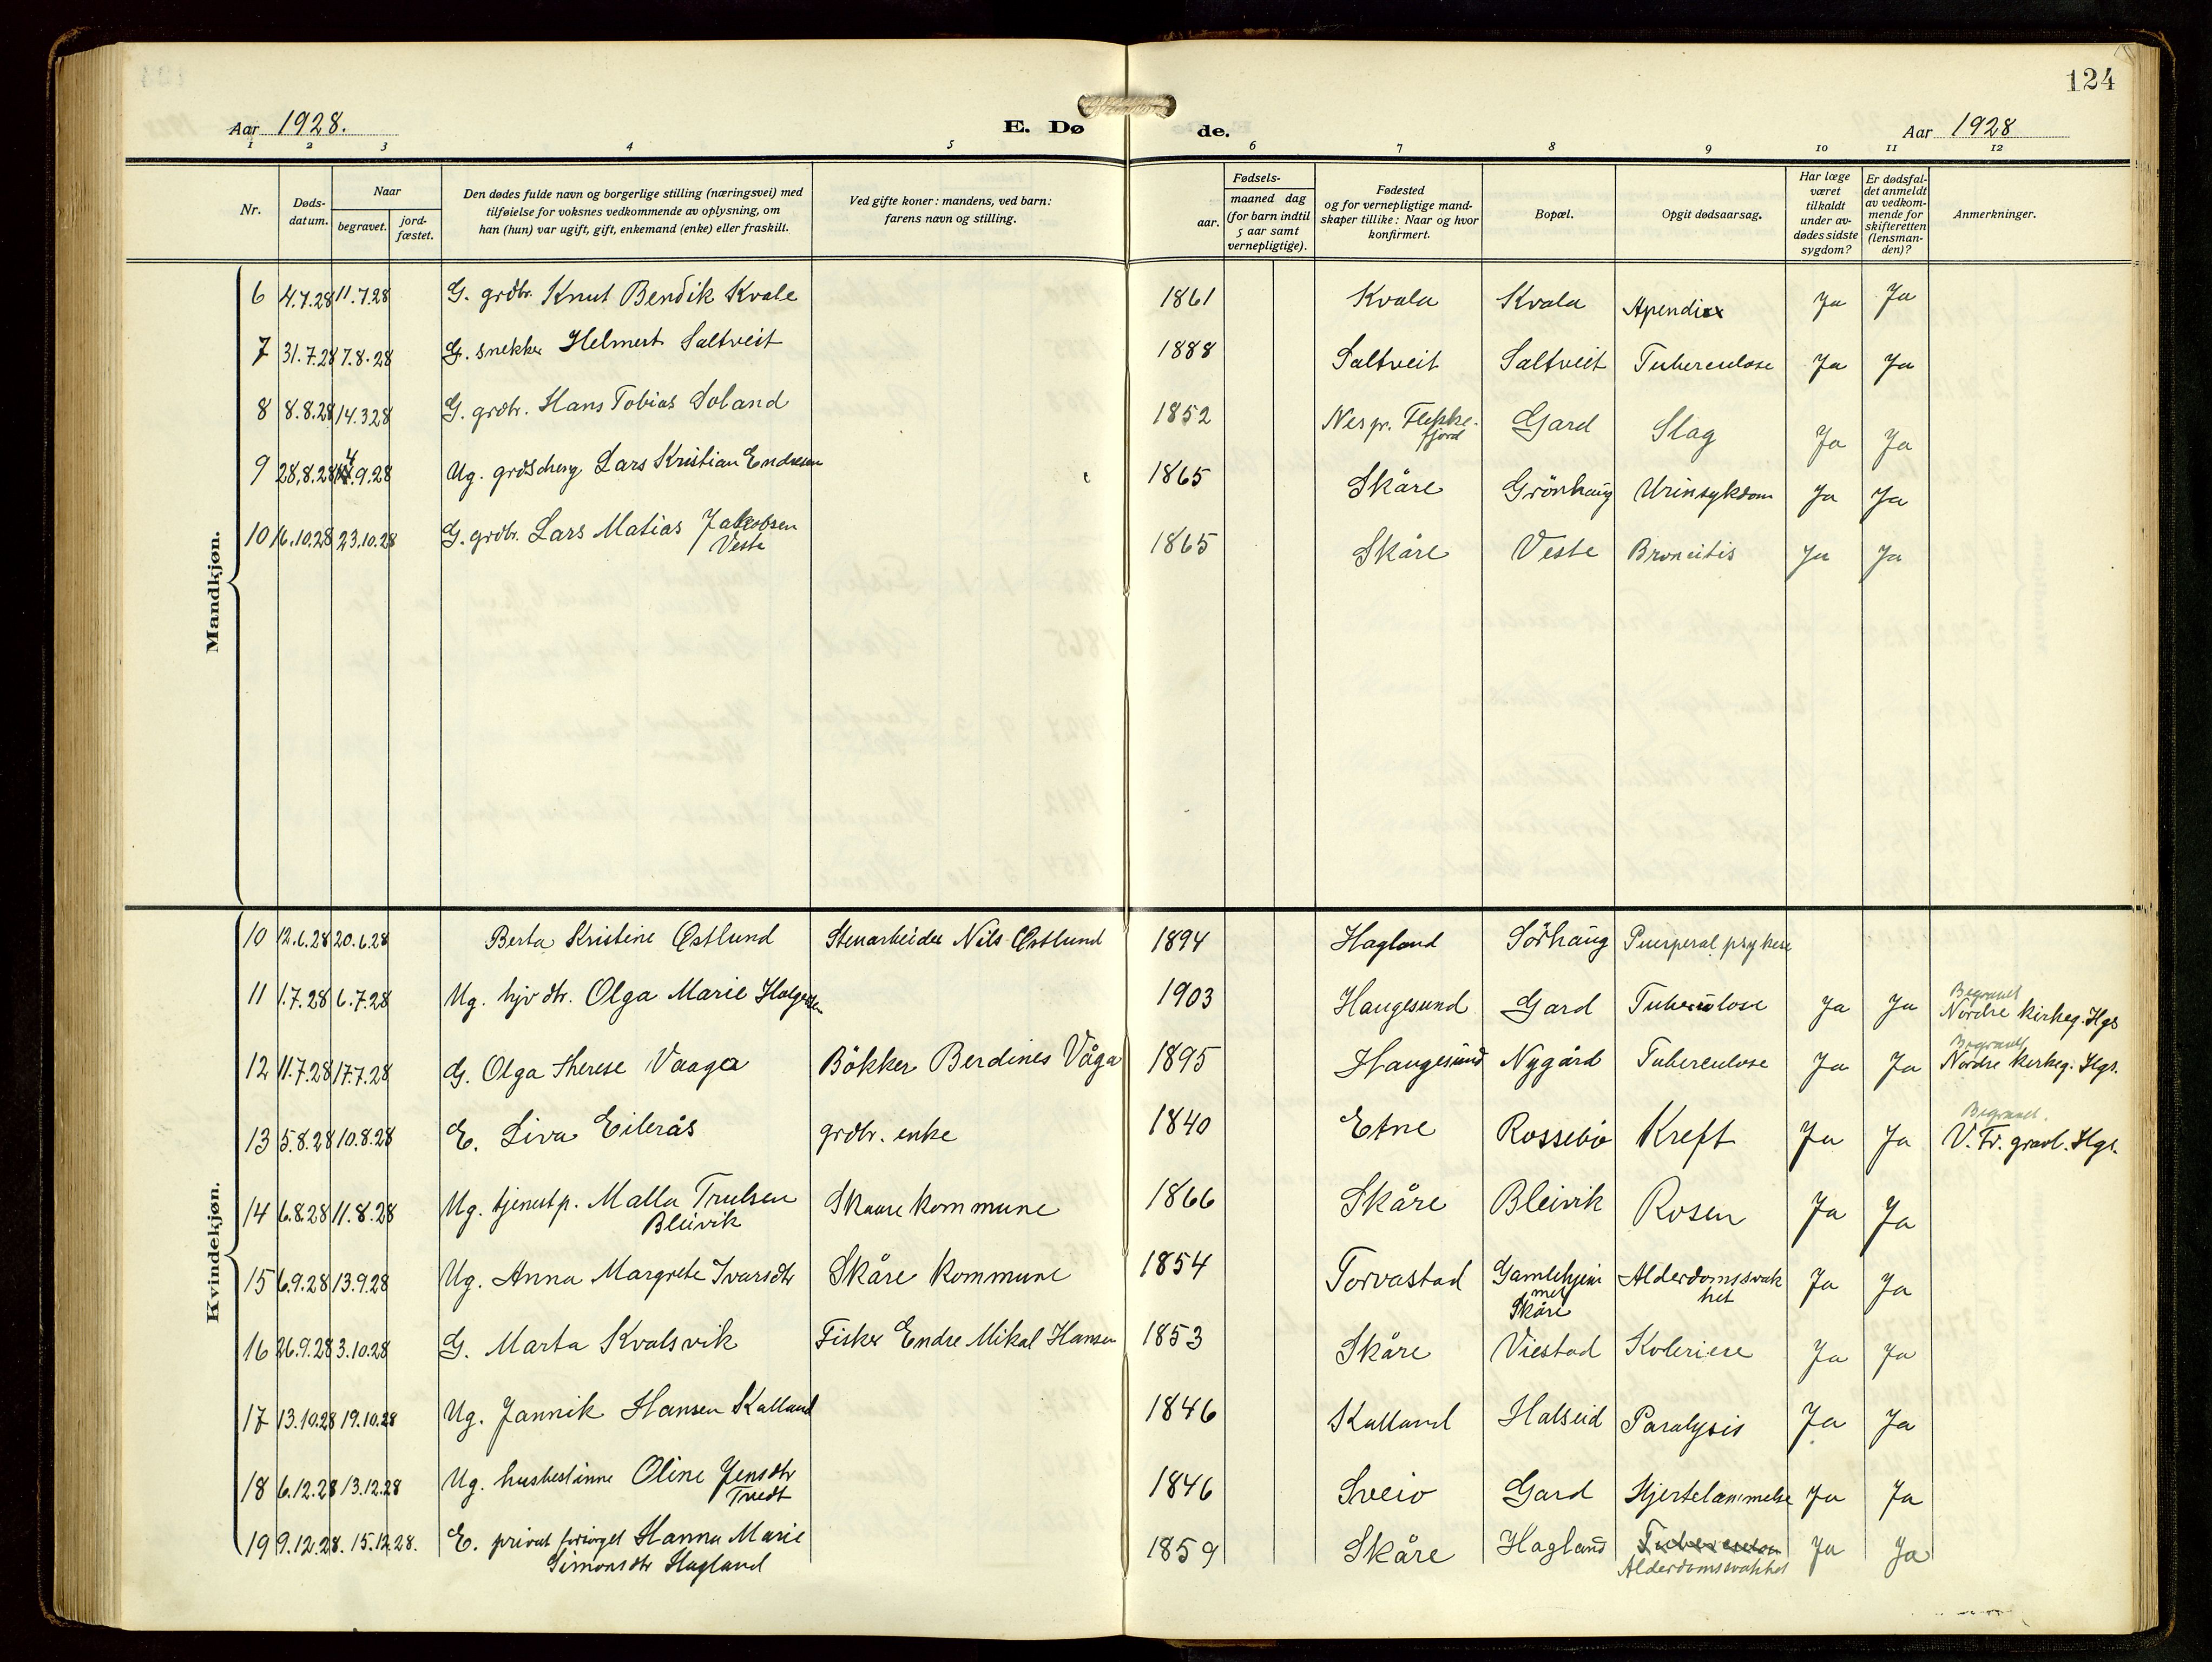 124
Aar 1928. E. Dø de. Aar 1928
1 2 3 4 5 6 7 8 9 10 11 12
Nr. Døds-datum. Naar begravet. jord-fæstet. Den dødes fulde navn og borgerlige stilling (næringsvei) med tilføielse for voksnes vedkommende av oplysning, om han (hun) var ugift, gift, enkemand (enke) eller fraskilt. Ved gifte koner: mandens, ved barn: farens navn og stilling. Fødsels- aar. maaned dag (for barn indtil 5 aar samt vernepligtige). Fødested og for vernepligtige mand-skaper tillike: Naar og hvor konfirmert. Bopæl. Opgit dødsaarsag. Har læge været tilkaldt under av-dødes sidste sygdom? Er dødsfal-det anmeldt av vedkom-mende for skifteretten (lensman-den)? Anmerkninger.
Mandkjøn.
6 4.7.28 11.7.28 G. grdbr. Knut Bendik Kvale 1861 Kvala Kvala Apendix Ja Ja
7 31.7.28 7.8.28 G. snekker Helmert Saltveit 1888 Saltveit Saltveit Tuberculose Ja Ja
8 8.8.28 14.3.28 G. grdbr. Hans Tobias Soland 1852 Nes pr. Flekke-fjord Gard Slag Ja Ja
9 28.8.28 4.9.28 Ug. Lars Kristian Endresen 1865 Skåre Grönhaug Urinsykdom Ja Ja
10 16.10.28 23.10.28 G. grdbr. Lars Matias Jakobsen Veste 1865 Skåre Veste Broncitis Ja Ja
Kvindekjøn.
10 12.6.28 20.6.28 Berta Kristine Østlund Stenarbeider Nils Østlund 1894 Hagland Sörhaug Puerperal psykose
11 1.7.28 6.7.28 Ug. hjv dtr. Olga Marie Holgersen 1903 Haugesund Gard Tuberculose Ja Ja Begravet Nordre kirkeg. Hgs
12 11.7.28 17.7.28 G. Olga Therese Vaaga Bökker Berdines Våga 1895 Haugesund Nygård Tuberculose Ja Ja Begravet Nordre kirkeg. Hgs.
13 5.8.28 10.8.28 E. Siva Eilerås grdbr. enke 1840 Etne Rossebö Kreft Ja Ja Begravet. V. Fr. gravl. Hgs.
14 6.8.28 11.8.28 Ug. tjenestp. Malla Trulsen Bleivik Skaare kommune 1866 Skåre Bleivik Rosen Ja Ja
15 6.9.28 13.9.28 Ug. Anna Margrete Ivarsdtr Skåre kommune 1854 Torvastad Gamlehjemmet Skåre Alderdomssvakhet Ja Ja
16 26.9.28 3.10.28 G. Marta Kvalsvik Fisker Endre Mikal Hansen 1853 Skåre Viestad Koleriese Ja Ja
17 13.10.28 19.10.28 Ug. Jannik Hansen Kalland 1846 Kalland Halseid Paralysis Ja Ja
18 6.12.28 13.12.28 Ug. husbestinne Oline Jensdtr Tvedt 1846 Sveio Gard Hjertelammelse Ja Ja
19 9.12.28. 15.12.28. E. privat forsörget Hanna Marie Simonsdtr Hagland 1859 Skåre Hagland Tuberculose Alderdomssvakhet Ja Ja